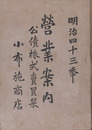 明治四十三年
營業案内
公債株式賣買業
小布施商店